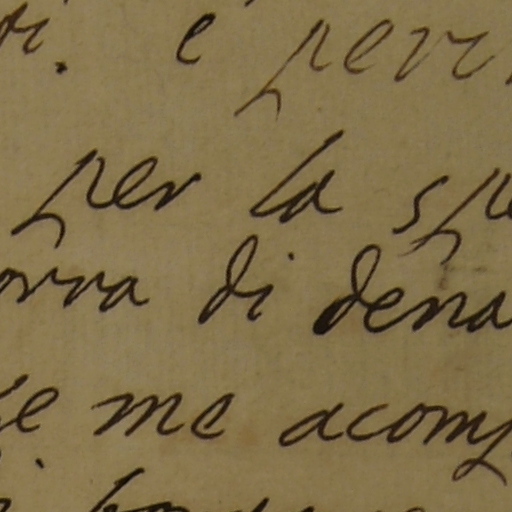 ti. e per
per la spe
orra di dena
se me acomp